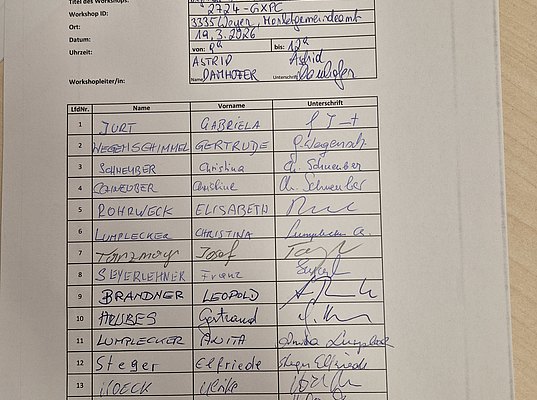 Titel des Workshops:
Workshop ID: 2724-GXPC
Ort: 3335 Weyer, Marktgemeindeamt
Datum: 19.3.2026
Uhrzeit: von: bis:
ASTRID Astrid
Workshopleiter/in: Name DAMHOFER Unterschrift Damhofer
LfdNr. Name Vorname Unterschrift
1 JURT GABRIELA
2 WEGENSCHIMMEL GERTRUDE G. Wegensch.
3 SCHNEUBER Christina Ch. Schneuber
4 SCHNEUBER Christine Ch. Schneuber
5 ROHRWECK ELISABETH
6 LUMPLECKER CHRISTINA Lumplecker
7 Tanzmayr Josef
8 SEYERLEHNER Franz
9 BRANDNER LEOPOLD
10 Gertraud
11 LUMPLECKER ANITA Anita
12 Steger Elfriede Steger Elfriede
13 Ulrike